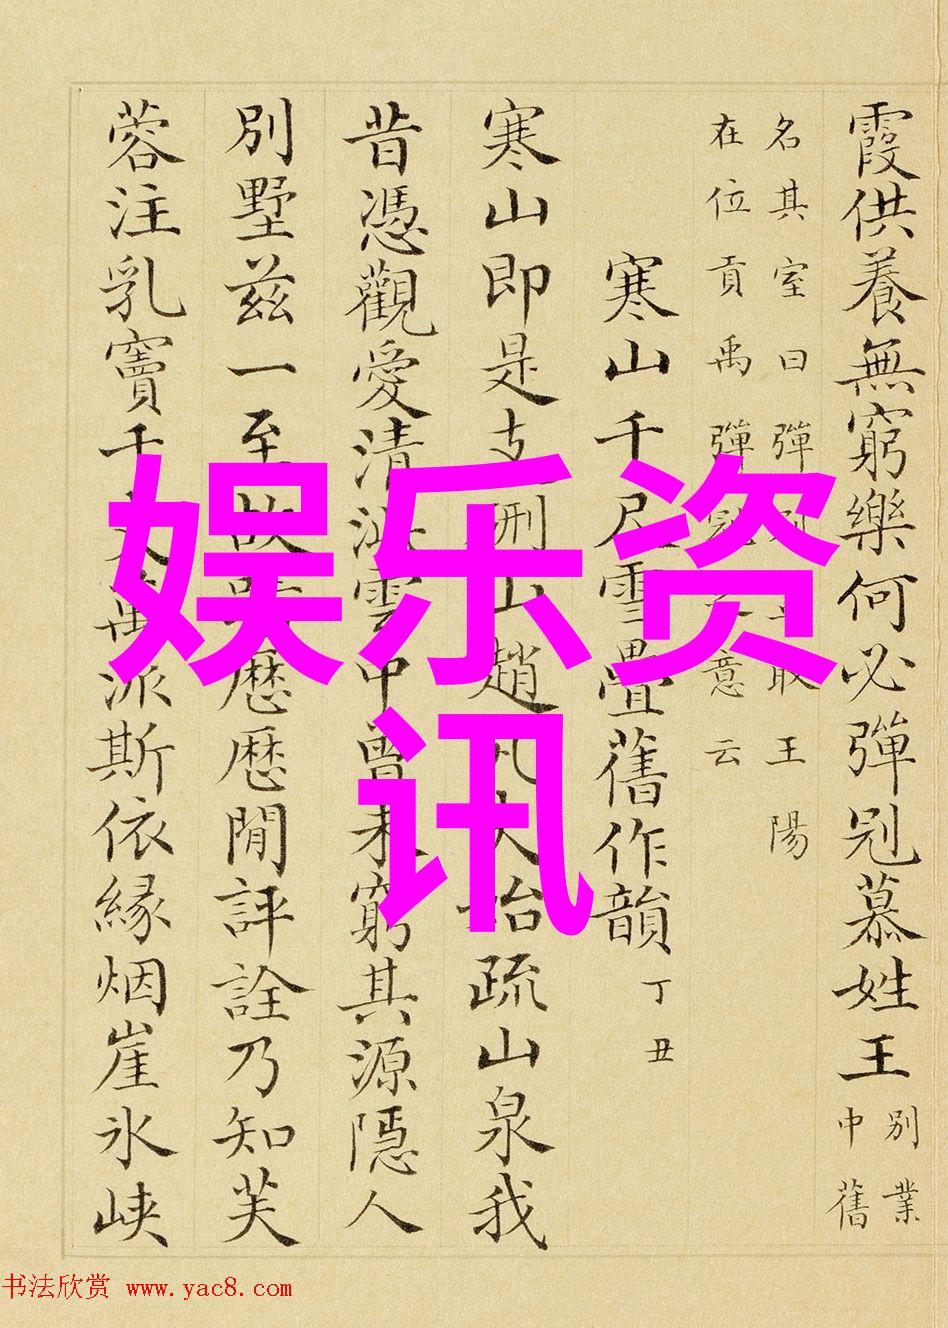 霞供養無窮樂何必彈冠慕姓王
別業
中舊
名其室曰彈 王陽
在位貢禹彈 意云
寒山千尺雪疊舊作韻
丁丑
寒山即是支硎山趙凡夫治疏山泉我
昔憑觀愛清 雲中曾未窮其源隱人
別墅茲一至故 歷歷閒評詮乃知芙
蓉注乳竇千 萬派斯依緣烟崖氷峽
娱乐资
讯
书法欣赏 www.yac8.com